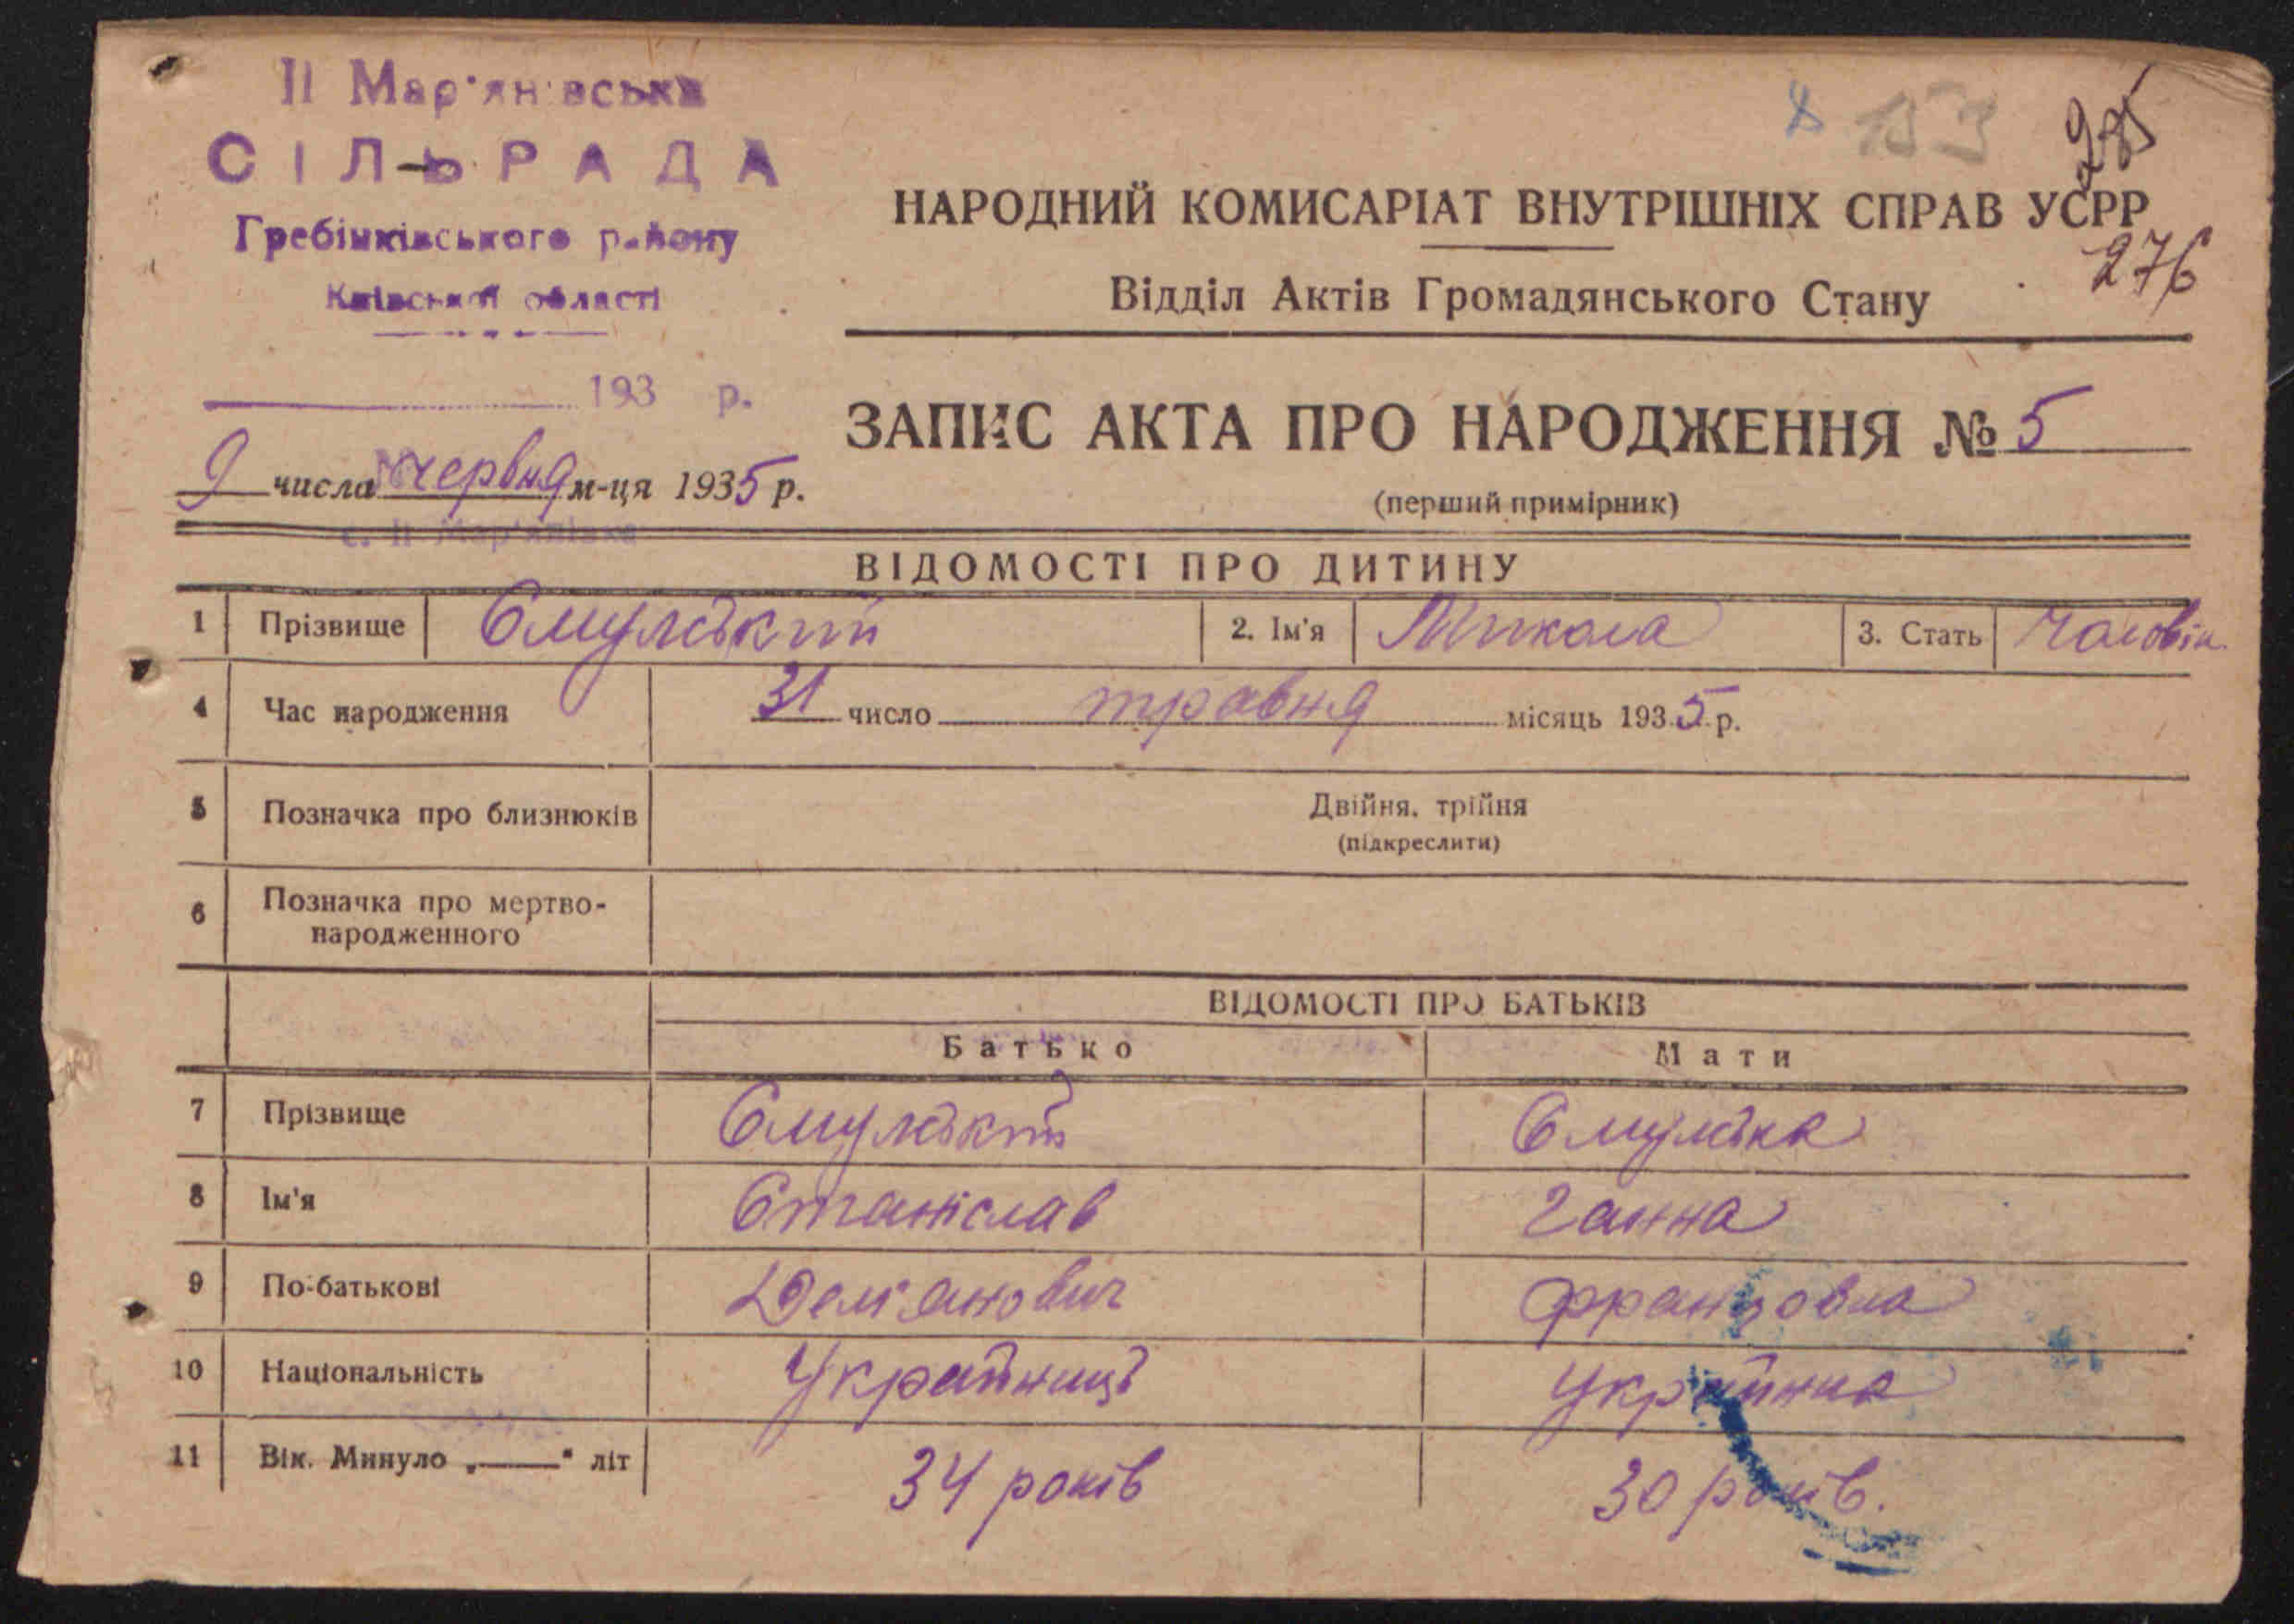 ІІ Мар'янівська
СІЛЬРАДА
Гребінківського району
Київської області
193 р.
9 числа червня м-ця 1935 р.
с. ІІ Мар'янівка
153
285
276
НАРОДНИЙ КОМИСАРІАТ ВНУТРІШНІХ СПРАВ УСРР
Відділ Актів Громадянського Стану
ЗАПИС АКТА ПРО НАРОДЖЕННЯ № 5
(перший примірник)
ВІДОМОСТІ ПРО ДИТИНУ
1 Прізвище Смульський 2. Ім'я Микола 3. Стать чоловіч.
4 Час народження 31 число травня місяць 1935 р.
5 Позначка про близнюків Двійня, трійня
(підкреслити)
6 Позначка про мертво-
народженного
ВІДОМОСТІ ПРО БАТЬКІВ
Батько Мати
7 Прізвище Смульський Смульська
8 Ім'я Станіслав Ганна
9 По-батькові Дем'янович Францовна
10 Національність Українець Українка
11 Вік. Минуло „——" літ 34 років 30 років.